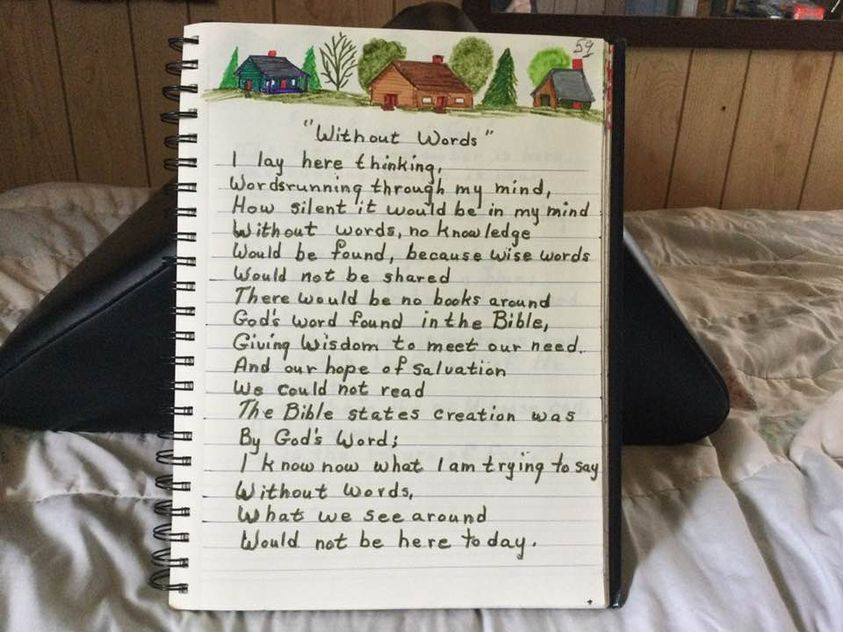 59
"Without Words"
I lay here thinking,
Wordsrunning through my mind,
How silent it would be in my mind
Without words, no knowledge
Would be found, because wise words
Would not be shared
There would be no books around
God's word found in the Bible,
Giving Wisdom to meet our need.
And our hope of salvation
We could not read
The Bible states creation was
By God's Word;
I know now what I am trying to say
Without Words,
What we see around
Would not be here today.